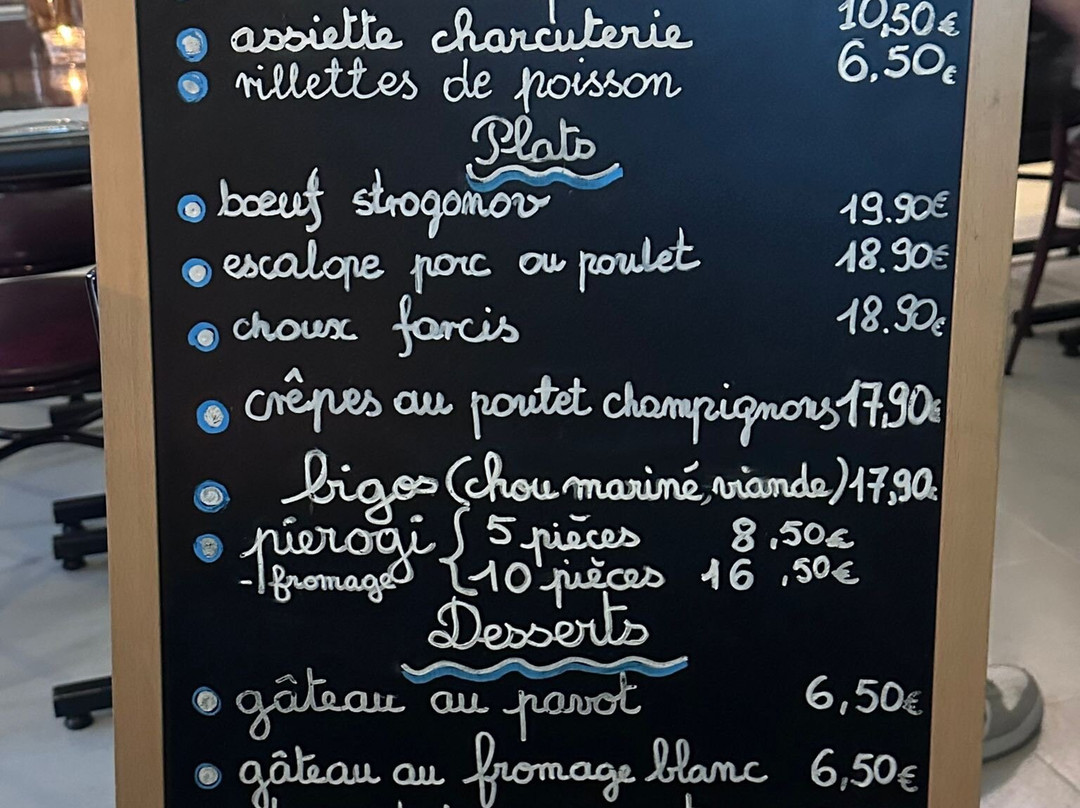 assiette charcuterie 10,50€
rillettes de poisson 6,50€
Plats
bœuf strogonov 19.90€
escalope porc ou poulet 18.90€
choux farcis 18.90€
crêpes au poulet champignons 17,90€
bigos (chou mariné, viande) 17,90€
pierogi { 5 pièces 8,50€
- fromage 10 pièces 16,50€
Desserts
gâteau au pavot 6,50€
gâteau au fromage blanc 6,50€